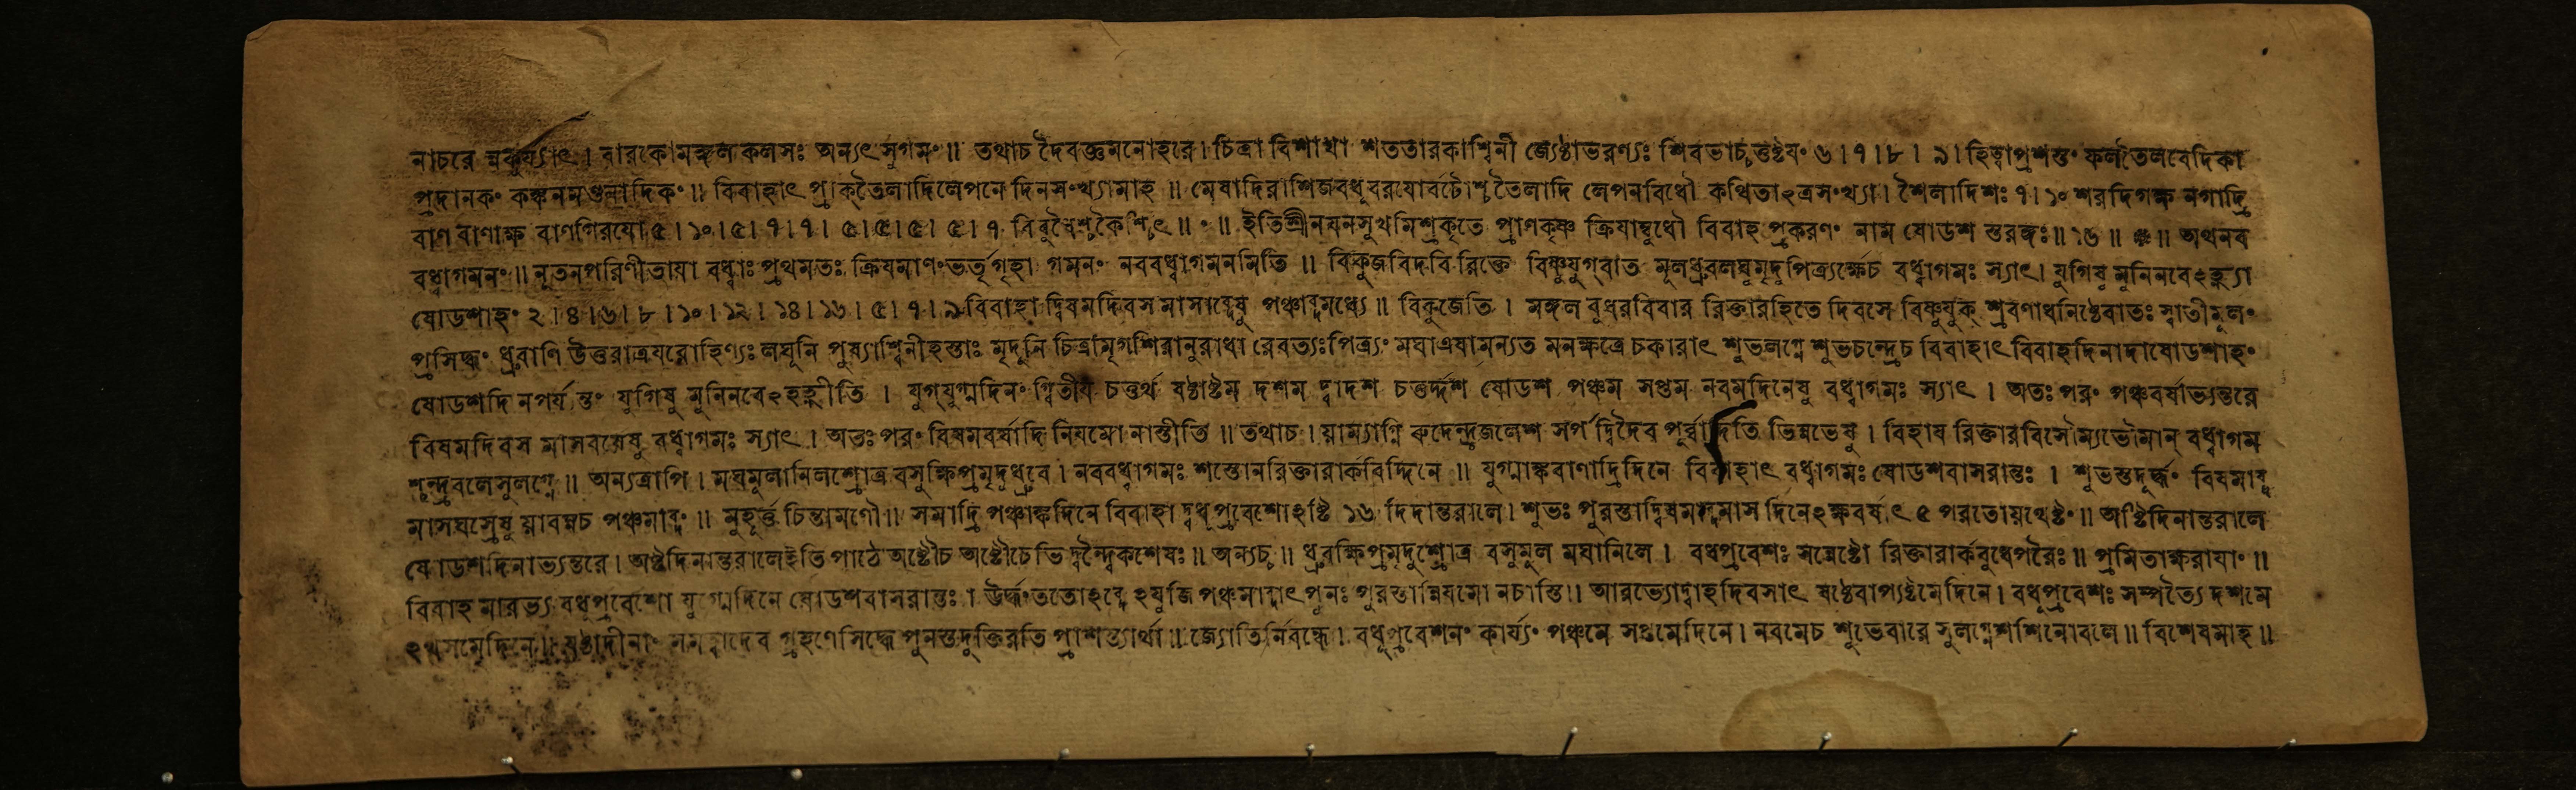 নাচরে ন্নকুর্য্যাৎ। বারকোমঙ্গল কলসঃ অন্যৎ সুগমং॥ তথাচ দৈবজ্ঞমনোহরে। চিত্রা বিশাখা শততারকাশ্বিনী জ্যেষ্ঠাভরণ্যঃ শিবভাচ্চতুষ্টযং ৬।৭।৮। ৯। হিত্বাপ্রশস্তং ফলতৈলবেদিকা
প্রদানকং কঙ্কনমণ্ডনাদিকং॥ বিবাহাৎ প্রাক্তৈলাদিলেপনে দিনসংখ্যামাহ॥ মেষাদিরাশিজবধূবরযোর্বটোশ্চ তৈলাদি লেপনবিধৌ কথিতাঽত্রসংখ্যা। শৈলাদিশঃ ৭।১০ শরদিগক্ষ নগাদ্রি
বাণ বাণাক্ষ বাণগিরযো ৫।১০।৫।৭।৭। ৫।৫।৫। ৫। ৭ বিবুধৈশ্চকৈশ্চিৎ॥ ০॥ ইতিশ্রীনযনসুখমিশ্রকৃতে প্রাণকৃষ্ণ ক্রিযাম্বুধৌ বিবাহ প্রকরণং নাম ষোডশ স্তরঙ্গঃ॥ ১৬॥ ॥ অথনব
বধ্বাগমনং॥ নূতনপরিণীতাযা বধ্বাঃ প্রথমতঃ ক্রিযমাণংভর্তৃগৃহা গমনং নববধ্বাগমনমিতি॥ বিকুজবিদবি রিক্তে বিষ্ণুযুগ্বাত মূলধ্রুবলঘুমৃদুপিত্র্যর্ক্ষেচ বধ্বাগমঃ স্যাৎ। যুগিষু মুনিনবেঽহ্ন্যা
ষোডশাহং ২।৪।৬।৮।১০।১২। ১৪।১৬।৫।৭।৯ বিবাহা দ্বিষমদিবস মাসাব্দেষু পঞ্চাব্দমধ্যে॥ বিকুজেতি। মঙ্গল বুধরবিবার রিক্তারহিতে দিবসে বিষ্ণুযুক্ শ্রবণাধনিষ্ঠেবাতঃ স্বাতীমূলং
প্রসিদ্ধং ধ্রুবাণি উত্তরাত্রযরোহিণ্যঃ লঘূনি পুষ্যাশ্বিনীহস্তাঃ মৃদূনি চিত্রামৃগশিরানুরাধা রেবত্যঃপিত্র্যং মঘাএষামন্যত মনক্ষত্রে চকারাৎ শুভলগ্নে শুভচন্দ্রেচ বিবাহাৎ বিবাহদিনাদাষোডশাহং
ষোডশদি নপর্য ন্তং যুগিষু মুনিনবেঽহহ্নীতি। যুগ্যুগ্মদিনং দ্বিতীয চতুর্থ ষষ্ঠাষ্টম দশম দ্বাদশ চতুর্দ্দশ ষোডশ পঞ্চম সপ্তম নবমদিনেষু বধ্বাগমঃ স্যাৎ। অতঃ পরং পঞ্চবর্ষাভ্যন্তরে
বিষমদিবস মাসবর্ষেষু বধ্বাগমঃ স্যাৎ। অতঃ পরং বিষমবর্ষাদি নিযমো নাস্তীতি॥ তথাচ। য়াম্যাগ্নি রুদেন্দ্রজলেশ সর্প দ্বিদৈব পূর্ব্বাদিতি ভিন্নভেষু। বিহায রিক্তারবিসৌম্যভৌমান্ বধ্বাগম
শ্চন্দ্রবলেসুলগ্নে॥ অন্যত্রাপি। মঘমূলানিলশ্রোত্র বসুক্ষিপ্রমৃদুধ্রুবে। নববধ্বাগমঃ শস্তোনরিক্তারার্কবিদ্দিনে॥ যুগ্মাঙ্কবাণাদ্রিদিনে বিবাহাৎ বধ্বাগমঃ ষোডশবাসরান্তঃ। শুভস্তদূর্দ্ধং বিষমাব্দ
মাসঘস্রেষু য়াবন্নচ পঞ্চমাব্দং॥ মুহূর্ত্ত চিন্তামণৌ॥ সমাদ্রি পঞ্চাঙ্কদিনে বিবাহা দ্বধূপ্রবেশোঽষ্টি ১৬ দিদান্তরালে। শুভঃ পুরস্তাদ্বিষমাব্দমাস দিনেঽক্ষবর্ষাৎ ৫ পরতোয়থেষ্টং॥ অষ্টিদিনান্তরালে
ষোডশদিনাভ্যন্তরে। অষ্টদিনান্তরালেইতি পাঠে অষ্টৌচ অষ্টৌচেতি দ্বন্দ্বৈকশেষঃ॥ অন্যচ্চ॥ ধ্রুবক্ষিপ্রমৃদুশ্রোত্র বসুমূল মঘানিলে। বধূপ্রবেশঃ সন্নেষ্টো রিক্তারার্কবুধেপরৈঃ॥ প্রমিতাক্ষরাযাং॥
বিবাহ মারভ্য বধূপ্রবেশো যুগ্মেদিনে ষোডশবাসরান্তঃ। ঊর্দ্ধংততোঽব্দেঽযুজি পঞ্চমাব্দাৎ পুনঃ পুরস্তান্নিযমো নচাস্তি॥ আরভ্যোদ্বাহদিবসাৎ ষষ্ঠেবাপ্যষ্টমেদিনে। বধূপ্রবেশঃ সম্পত্ত্যৈ দশমে
ঽথসমেদিনে॥ ষষ্ঠাদীনাং সমত্বাদেব গ্রহণেসিদ্ধে পুনস্তদুক্তিরতি প্রাশস্ত্যার্থা॥ জ্যোতির্নিবন্ধে। বধূপ্রবেশনং কার্য্যং পঞ্চমে সপ্তমেদিনে। নবমেচ শুভেবারে সুলগ্নেশশিনোবলে॥ বিশেষমাহ॥